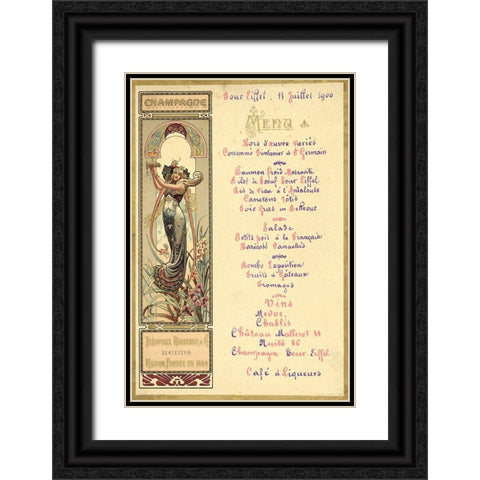 CHAMPAGNE
THÉOPHILE ROEDERER & Co
REIMS
MAISON FONDÉE EN 1864
Tour Eiffel, 11 Juillet 1900
MENU
Hors d'œuvre Variés
Consommé Printanier & St Germain
Saumon froid Moscovite
Filet de Bœuf Tour Eiffel
Ris de Veau à l'Andalouse
Canetons Rôtis
Foie Gras en Bellevue
Salade
Petits pois à la Française
Haricots Panachés
Bombe Exposition
Fruits & Gâteaux
Fromages
Vins
Médoc,
Chablis
Château Malleret
Nuits
Champagne Tour Eiffel
Café & Liqueurs